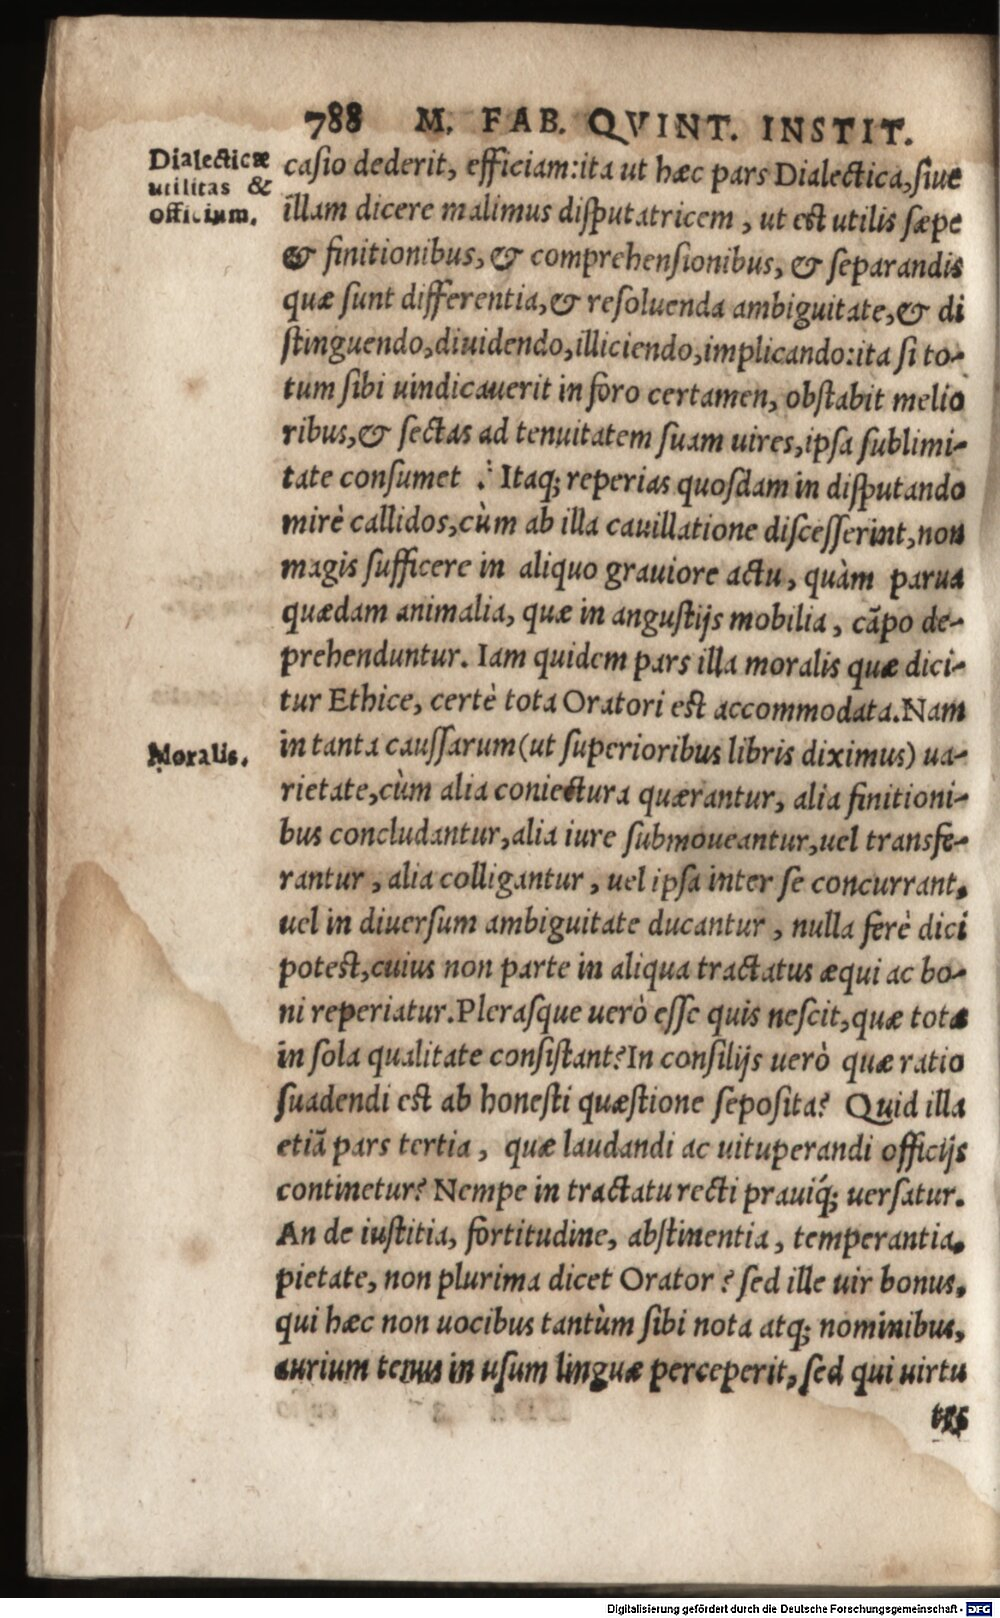 788 M. FAB. QVINT. INSTIT.
Dialecticæ
utilitas &
officium.
casio dederit, efficiam:ita ut hæc pars Dialectica,siue
illam dicere malimus disputatricem, ut est utilis sæpe
& finitionibus, & comprehensionibus, & separandis
quæ sunt differentia,& resoluenda ambiguitate,& di
stinguendo,diuidendo,illiciendo,implicando:ita si to-
tum sibi uindicauerit in foro certamen, obstabit melio
ribus,& sectas ad tenuitatem suam uires,ipsa sublimi-
tate consumet . Itaq; reperias quosdam in disputando
mirè callidos,cùm ab illa cauillatione discesserint,non
magis sufficere in aliquo grauiore actu, quàm parua
quædam animalia, quæ in angustijs mobilia, cãpo de-
prehenduntur. Iam quidem pars illa moralis quæ dici-
tur Ethice, certè tota Oratori est accommodata.Nam
Moralis.
in tanta caussarum(ut superioribus libris diximus) ua-
rietate,cùm alia coniectura quærantur, alia finitioni-
bus concludantur,alia iure submoueantur,uel transfe-
rantur, alia colligantur, uel ipsa inter se concurrant,
uel in diuersum ambiguitate ducantur, nulla ferè dici
potest,cuius non parte in aliqua tractatus æqui ac bo-
ni reperiatur.Plerasque uerò esse quis nescit,quæ totæ
in sola qualitate consistant?In consilijs uerò quæ ratio
suadendi est ab honesti quæstione seposita? Quid illa
etiã pars tertia, quæ laudandi ac uituperandi officijs
continetur? Nempe in tractatu recti prauiq́; uersatur.
An de iustitia, fortitudine, abstinentia, temperantia,
pietate, non plurima dicet Orator? sed ille uir bonus,
qui hæc non uocibus tantùm sibi nota atq; nominibus,
aurium tenus in usum linguæ perceperit, sed qui uirtu
tes
Digitalisierung gefördert durch die Deutsche Forschungsgemeinschaft - DFG